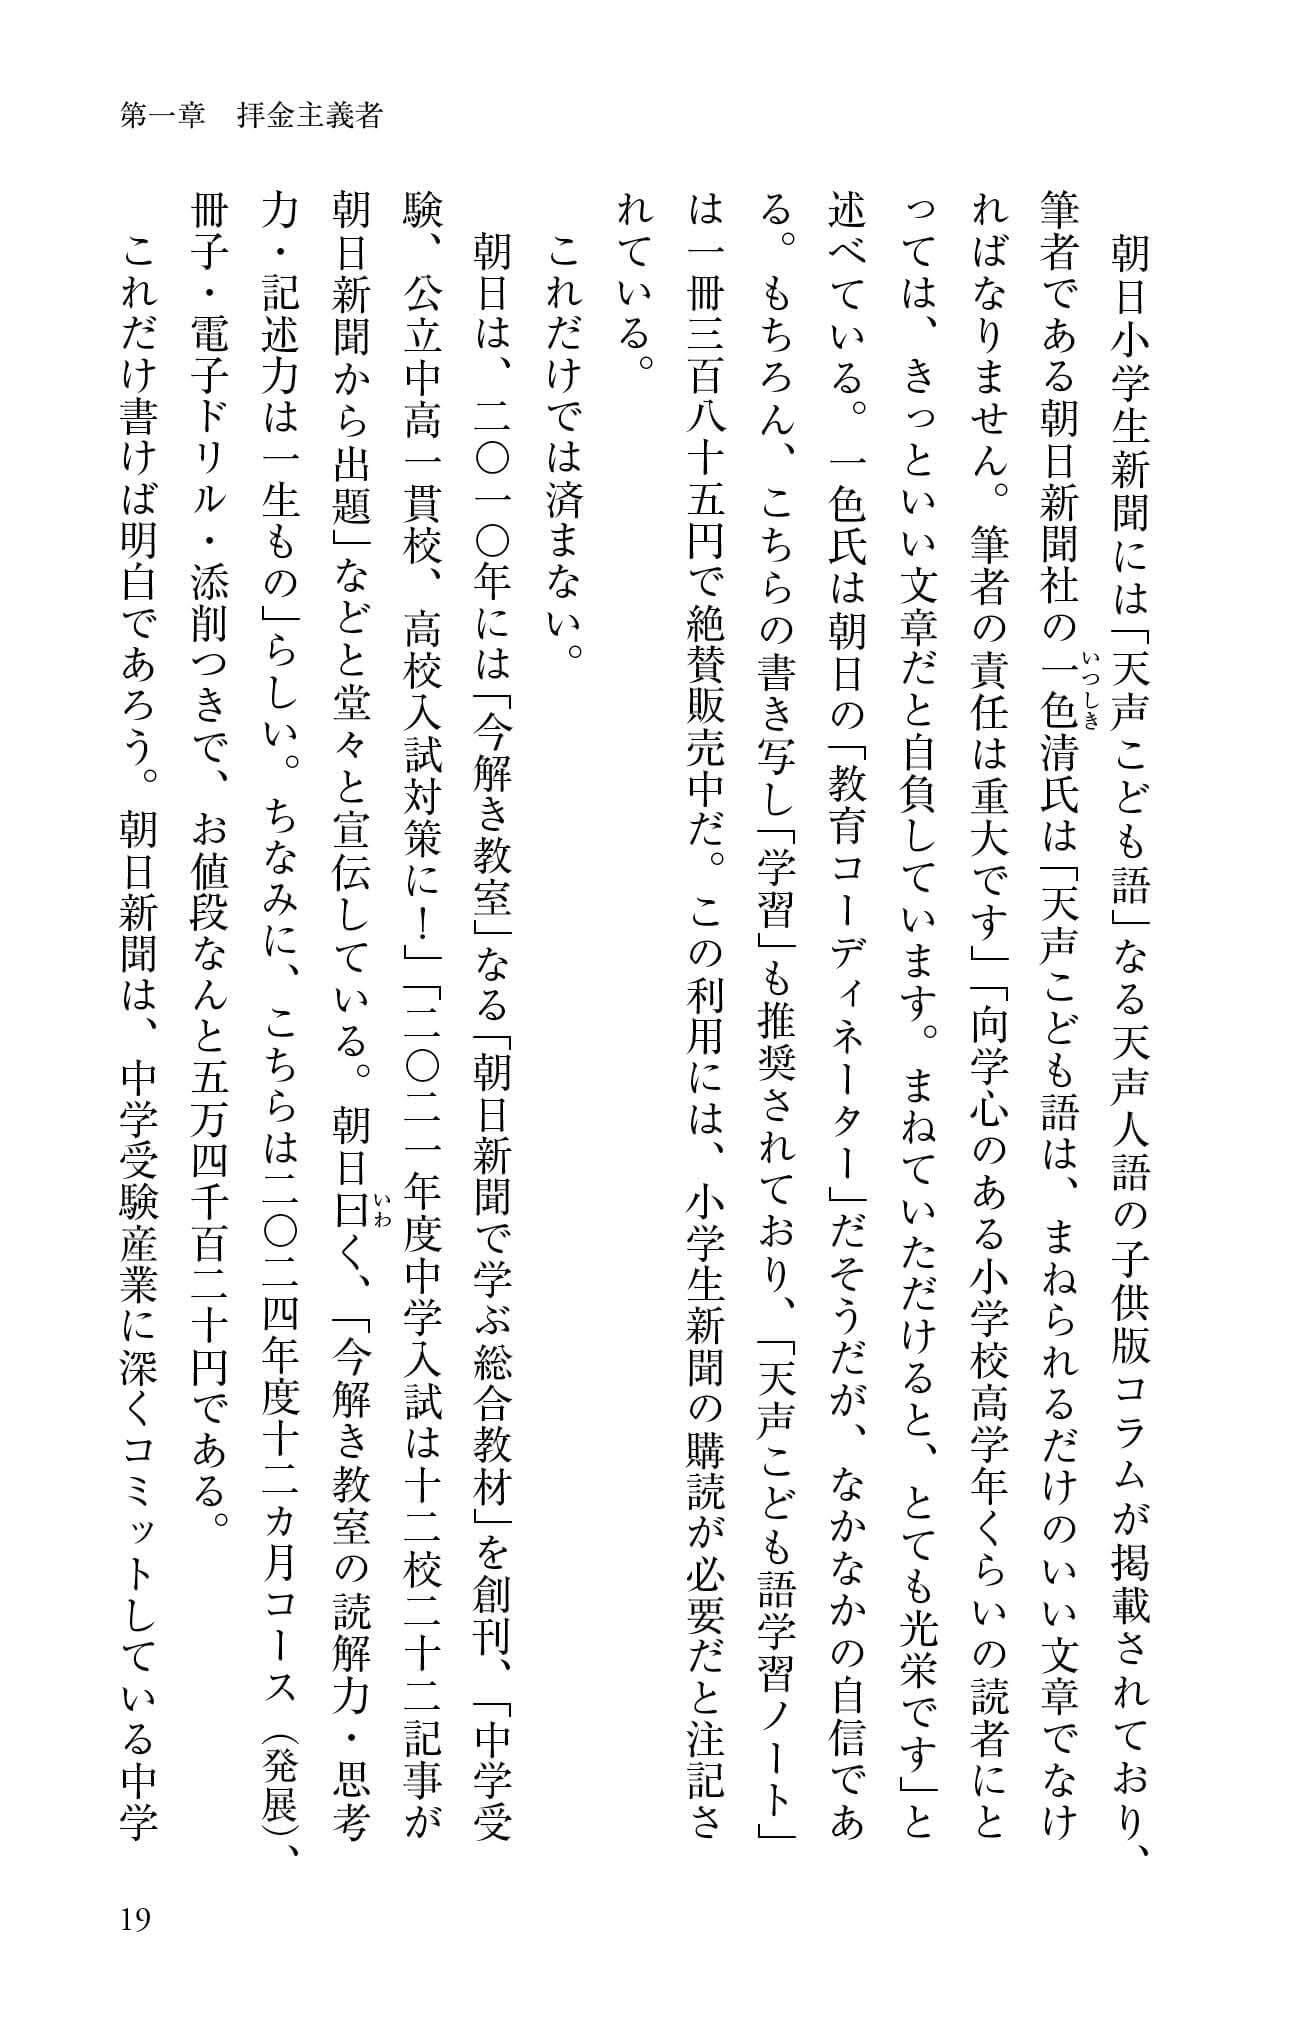 第一章　拝金主義者
　朝日小学生新聞には「天声こども語」なる天声人語の子供版コラムが掲載されており、
筆者である朝日新聞社の一色清氏は「天声こども語は、まねられるだけのいい文章でなけ
いつしき
ればなりません。筆者の責任は重大です」「向学心のある小学校高学年くらいの読者にと
っては、きっといい文章だと自負しています。まねていただけると、とても光栄です」と
述べている。一色氏は朝日の「教育コーディネーター」だそうだが、なかなかの自信であ
る。もちろん、こちらの書き写し「学習」も推奨されており、「天声こども語学習ノート」
は一冊三百八十五円で絶賛販売中だ。この利用には、小学生新聞の購読が必要だと注記さ
れている。
　これだけでは済まない。
　朝日は、二〇一〇年には「今解き教室」なる「朝日新聞で学ぶ総合教材」を創刊、「中学受
験、公立中高一貫校、高校入試対策に！」「二〇二一年度中学入試は十二校二十二記事が
朝日新聞から出題」などと堂々と宣伝している。朝日曰く、「今解き教室の読解力・思考
いわ
力・記述力は一生もの」らしい。ちなみに、こちらは二〇二四年度十二カ月コース（発展）、
冊子・電子ドリル・添削つきで、お値段なんと五万四千百二十円である。
　これだけ書けば明白であろう。朝日新聞は、中学受験産業に深くコミットしている中学
19